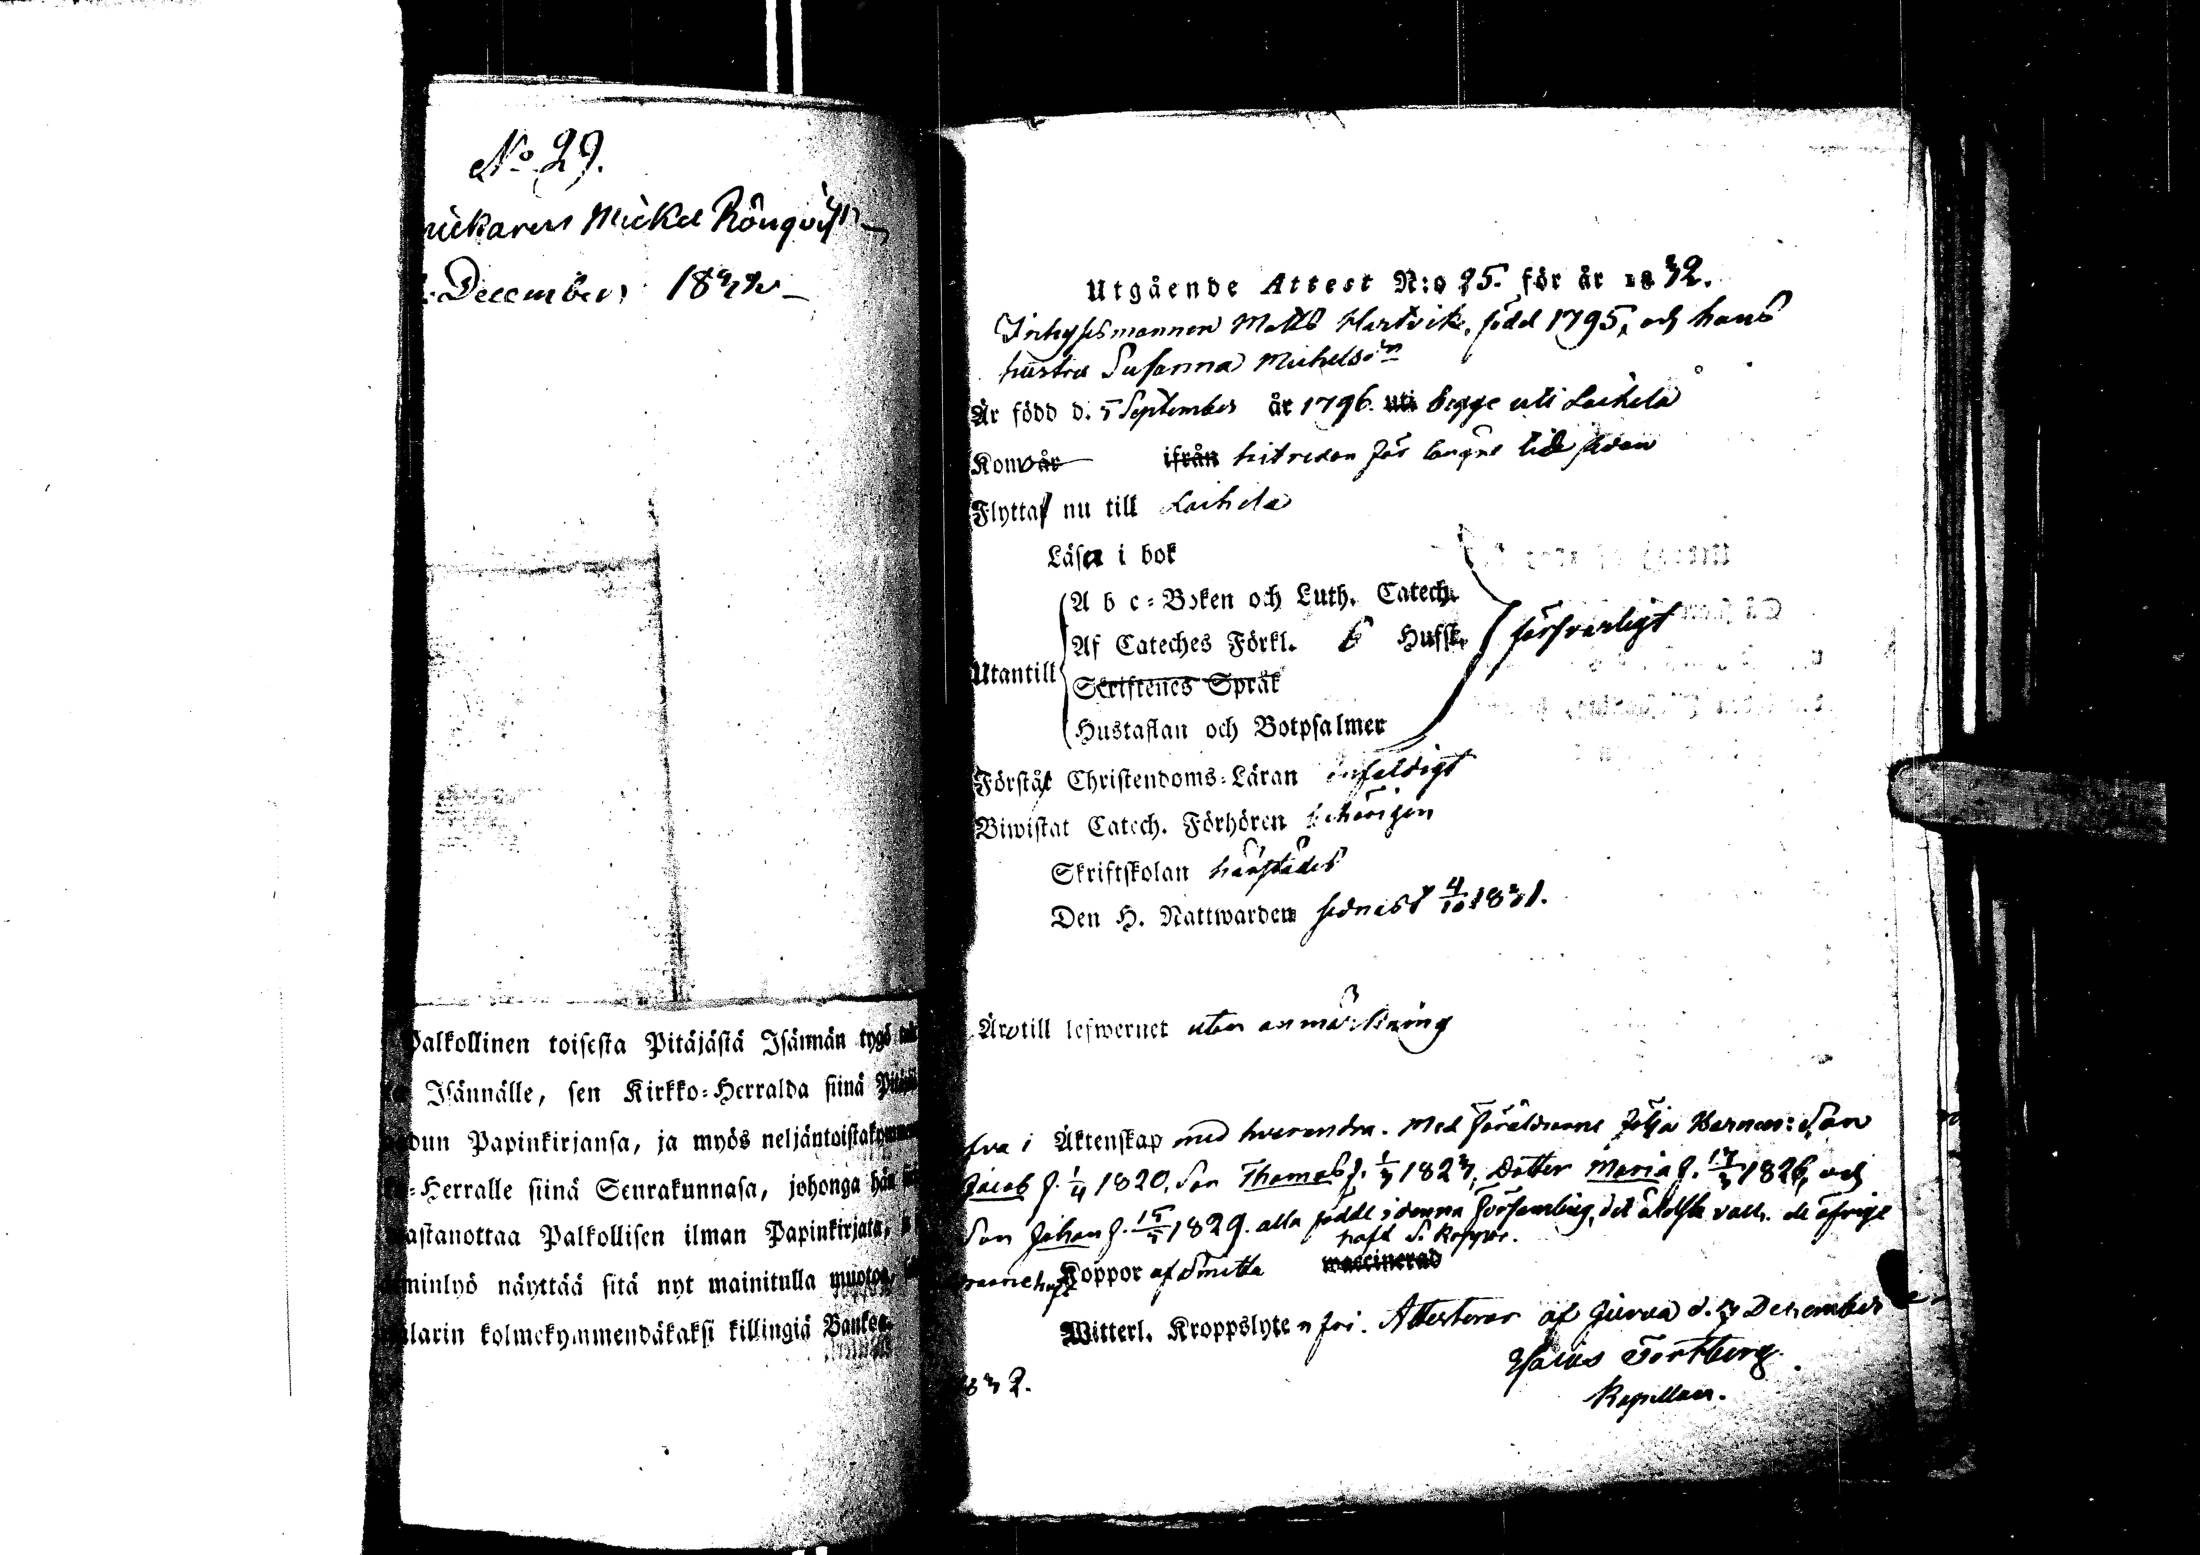 No 29.
Mickel Rönqvist
December 1832
Palkollinen toisesta Pitäjästä Isännän tygö
Isännälle, sen Kirkko-Herralda siinä
Papinkirjansa, ja myös
-Herralle siinä Seurakunnasa, johonga hän
Palkollisen ilman Papinkirjata,
näyttää sitä nyt mainitulla muotoa,
kolmekymmendäkaksi killingiä Bankos.
Utgående Attest N:o 25. för år 1832.
Inhysesmannen Matts Hartvik, född 1795, och hans
hustru Susanna Michelsdr
Är född d. 5 September år 1796. uti begge uti Laihela
Kom år ifrån hit redan för längre tid sedan
Flytta nu till Laihela
Läsa i bok
A b c-Boken och Luth. Catech.
Af Cateches Förkl. 6 Hufst. försvarligt
Utantill
Skriftenes Språk
Hustaflan och Botpsalmer
Förstå Christendoms-Läran enfaldigt
Biwistat Catech. Förhören behörigen
Skriftskolan härstädes
Den H. Nattwarden sednast 4/10 1831.
Äro till lefwernet utan anmärkning
i Äktenskap med hvarandra. Med Föräldrarne följa Barnen: Son
Jacob f. 1/4 1820, Son Thomas f. 1/3 1823, Dotter Maria f. 17/3 1826, och
Son Johan f. 15/5 1829. alla födde i denna Församling, det äldsta vacc. de öfrige
haft S. Koppor.
Koppor af Smitta waccinerad
Witterl. Kroppslyte n fri. Attesterar af Jurva d. 3 December
1832.
Esaias Tortberg
Kapellan.